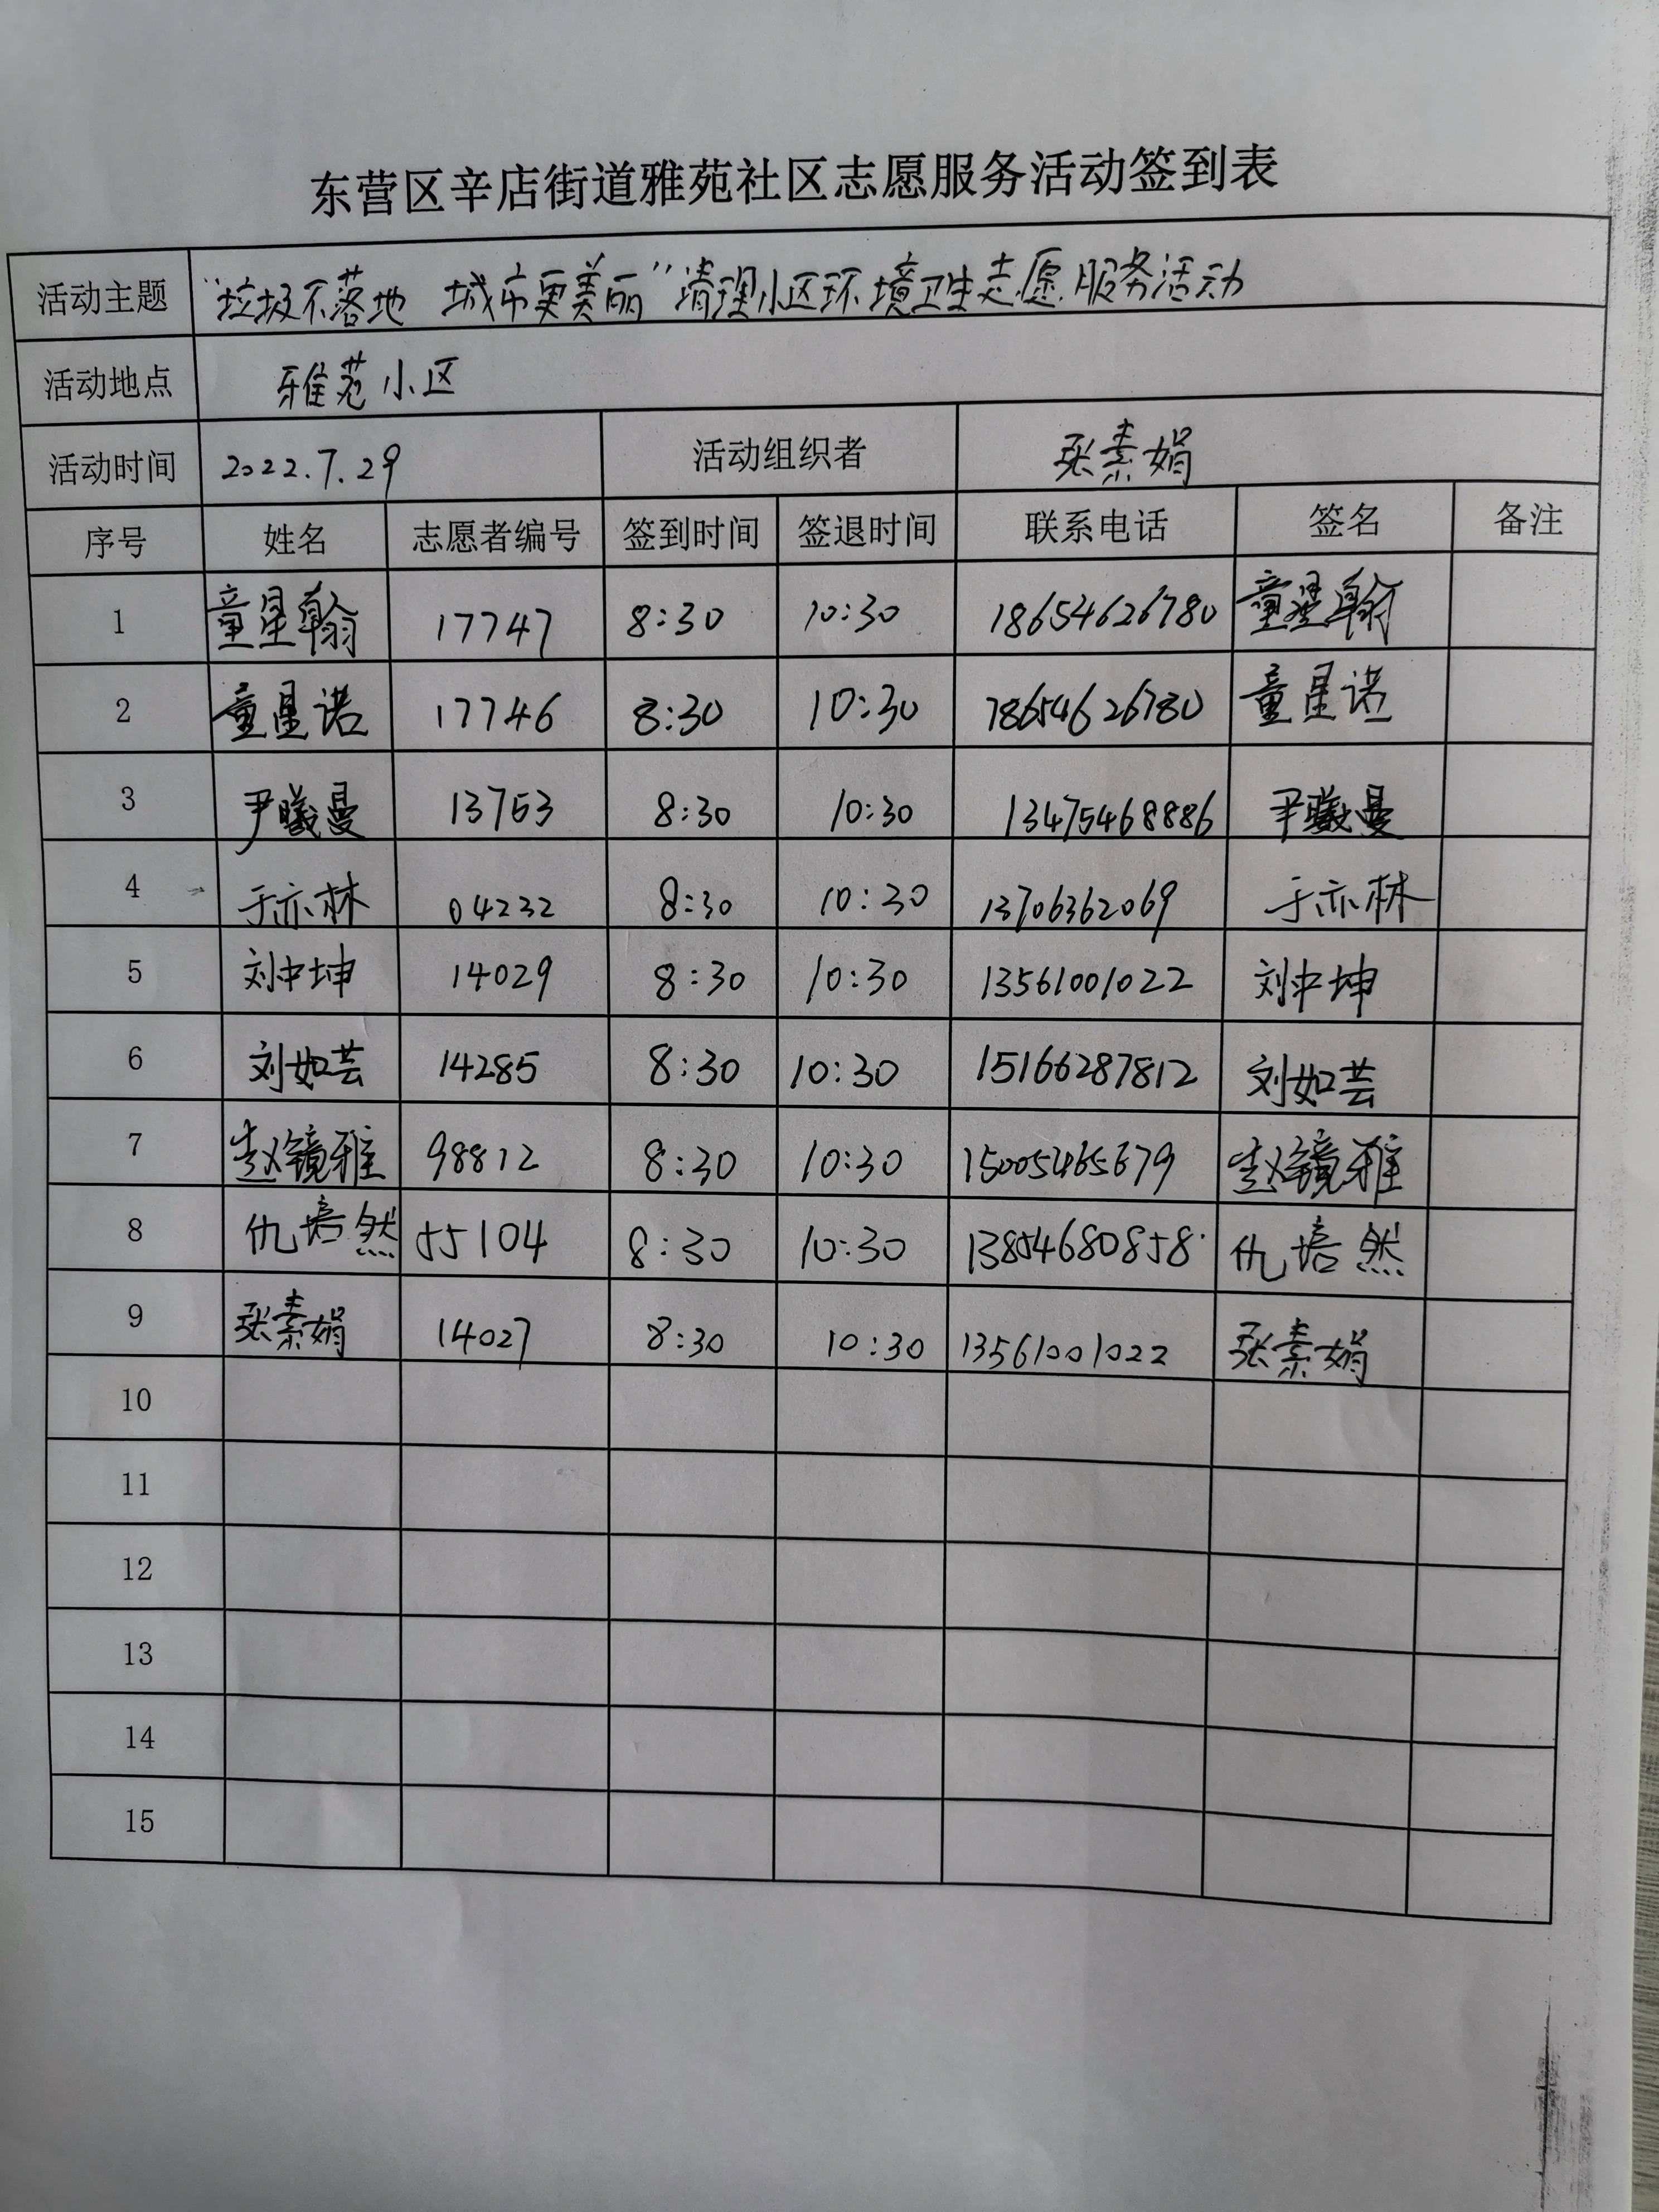 东营区辛店街道雅苑社区志愿服务活动签到表
活动主题 “垃圾不落地 城市更美丽”清理小区环境卫生志愿服务活动
活动地点 雅苑小区
活动时间 2022.7.29 活动组织者 张素娟
序号 姓名 志愿者编号 签到时间 签退时间 联系电话 签名 备注
1 童星翰 17747 8:30 10:30 18654626780 童星翰
2 童星诺 17746 8:30 10:30 18654626780 童星诺
3 尹曦曼 13753 8:30 10:30 13475468886 尹曦曼
4 于亦林 04232 8:30 10:30 13706362069 于亦林
5 刘中坤 14029 8:30 10:30 13561001022 刘中坤
6 刘如芸 14285 8:30 10:30 15166287812 刘如芸
7 赵镜雅 98812 8:30 10:30 15005465679 赵镜雅
8 仇培然 55104 8:30 10:30 13854680858 仇培然
9 张素娟 14027 8:30 10:30 13561001022 张素娟
10
11
12
13
14
15